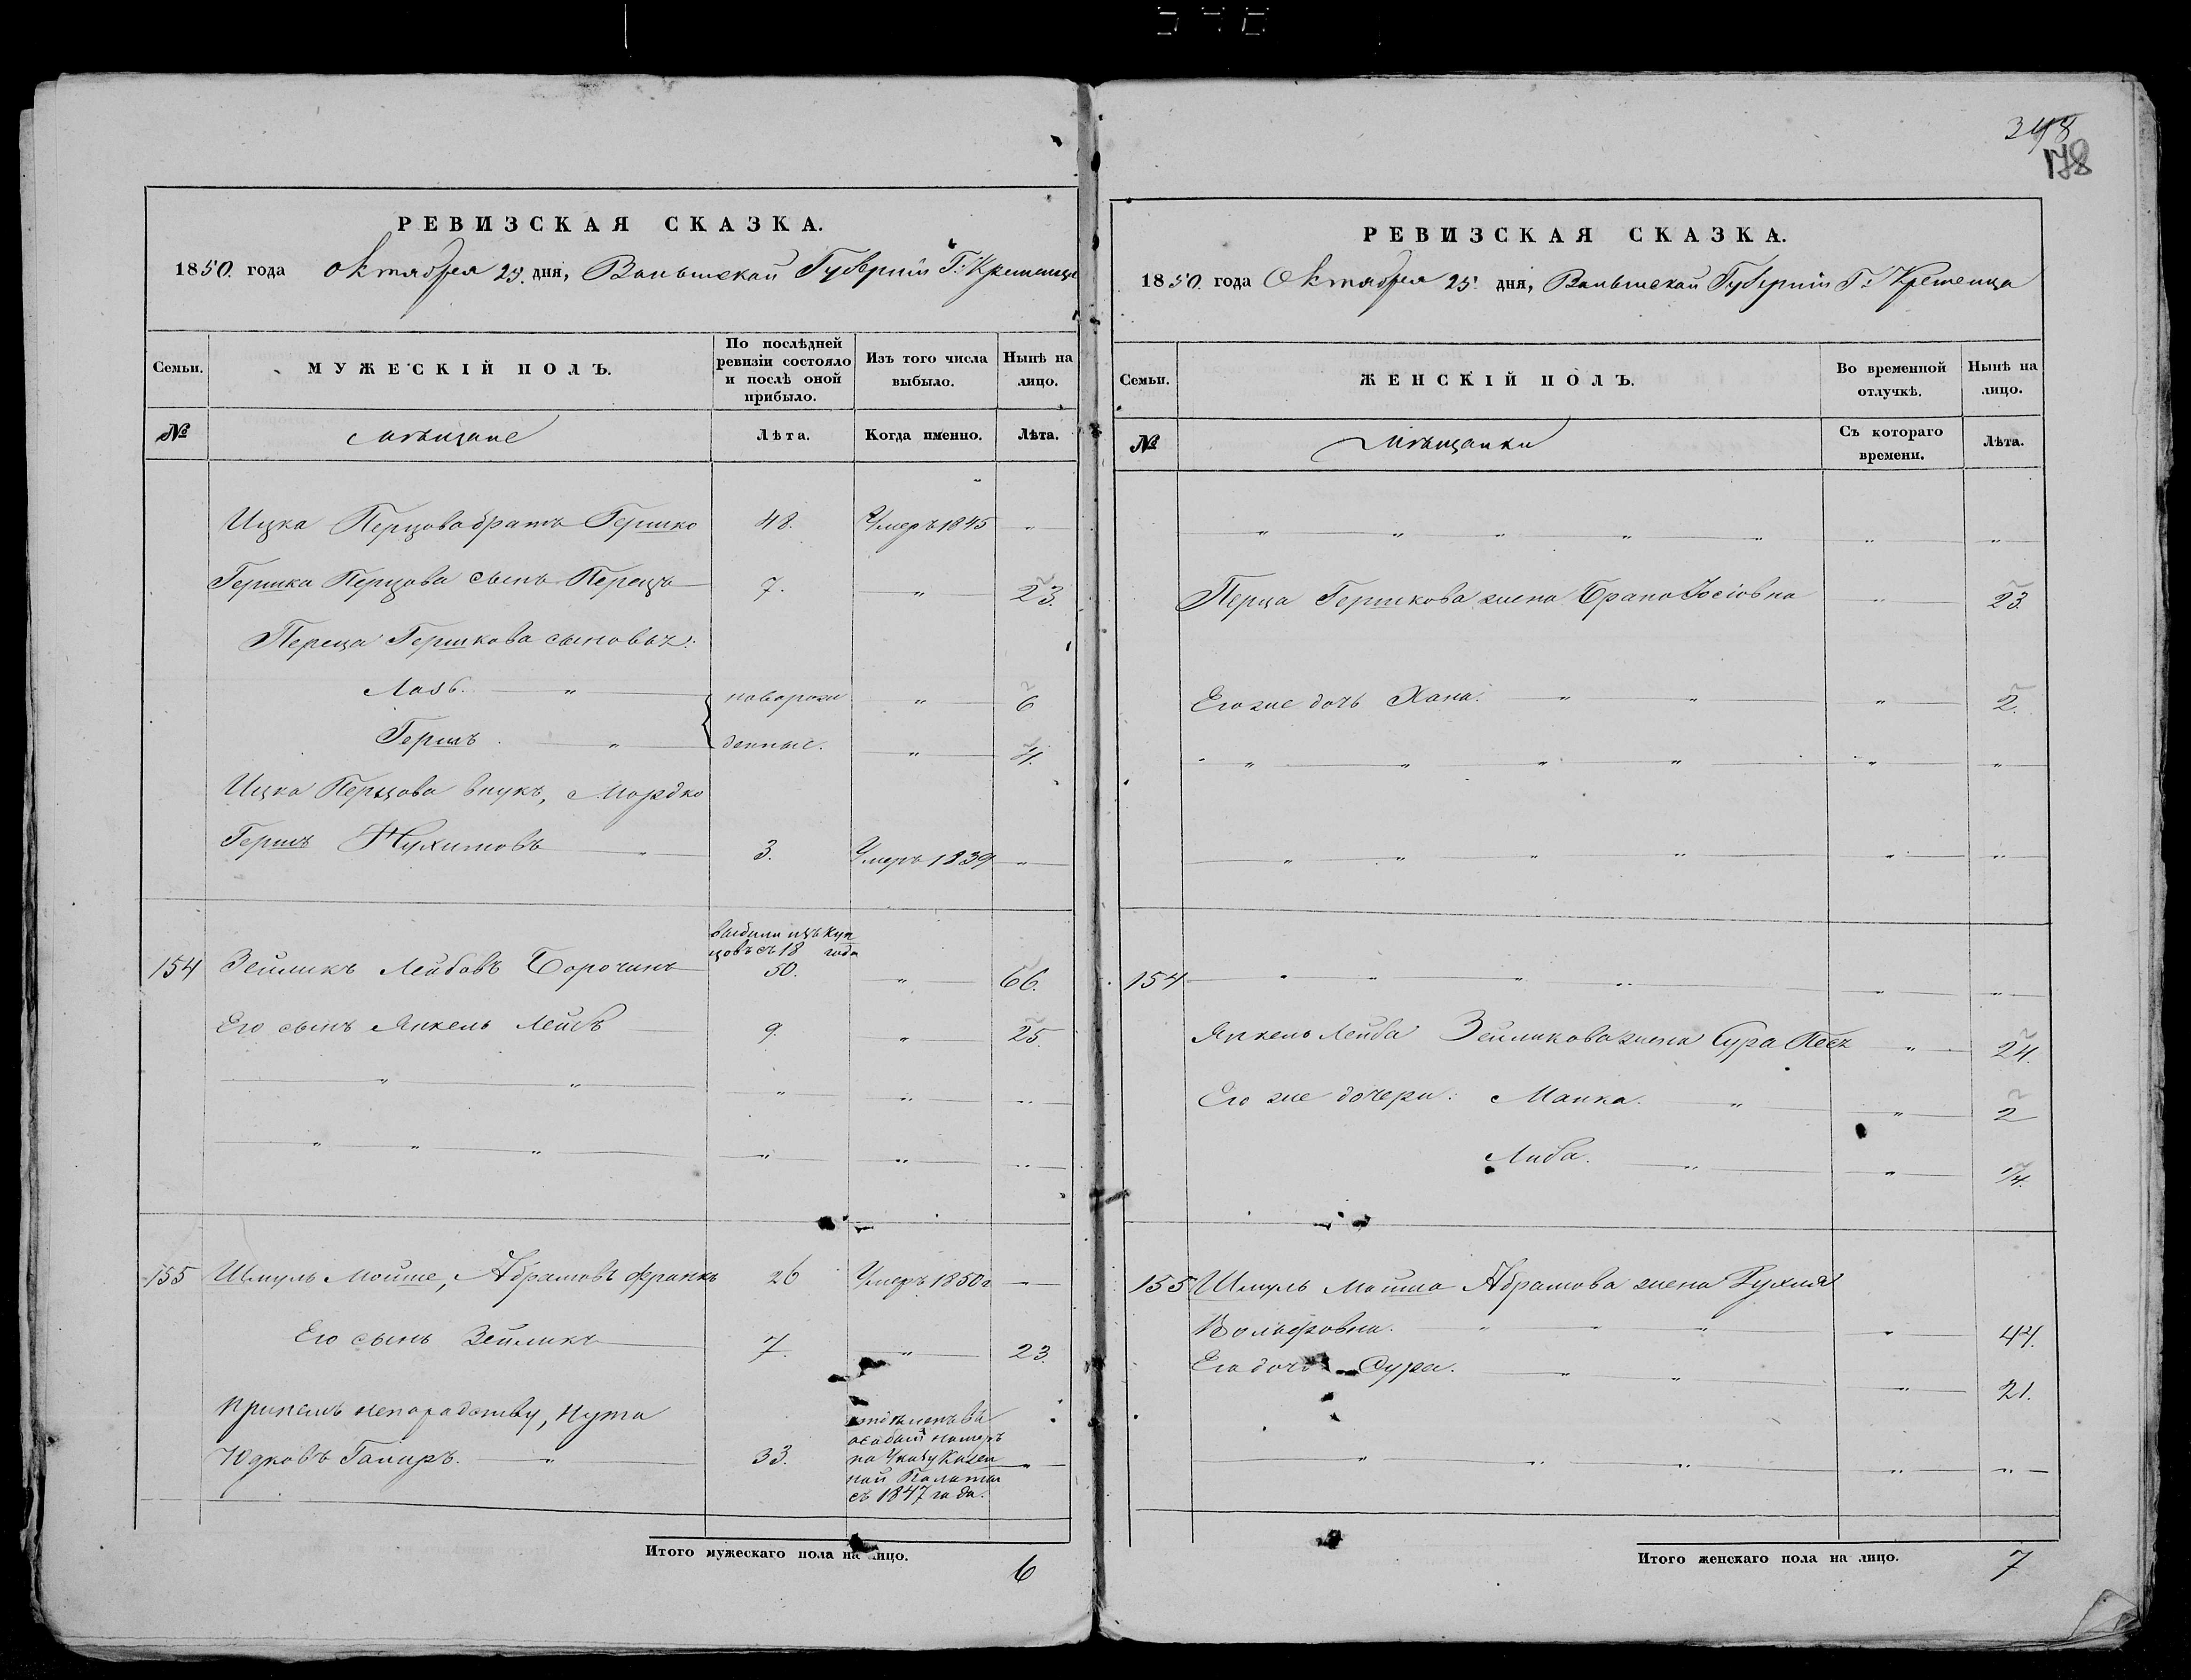 РЕВИЗСКАЯ СКАЗКА.
1850. года октября 25. дня, Волынской Губерніи Г: Кременца
Семьи.
МУЖЕСКІЙ ПОЛЪ.
По послѣдней ревизіи состояло и послѣ оной прибыло.
Изъ того числа выбыло.
Нынѣ на лицо.
№
мѣщане
Лѣта.
Когда именно.
Лѣта.
Ицка Перцова братъ Гершко 48. Умеръ 1845 "
Гершка Перцова сынъ Перецъ 7. " 23.
Переца Гершкова сыновья:
Лазь. " новорож " 6
Гершъ. " денные. " 4.
Ицка Перцова внукъ, Мордко
Гершъ Нухимовъ " 3. Умеръ 1839 "
изъ куп
цовъ съ 18 года
154 Зейликъ Лейбовъ Борочинъ 50. " 66.
Его сынъ Янкель Лейбъ 9. " 25.
" " " " "
" " " " " "
155 Шмуль Мойше, Абрамовъ Франкъ 26 Умеръ 1850г
Его сынъ Зейликъ 7. " 23.
отдѣленъ въ
Нута
особый номеръ
Юдковъ 33. "
по Указу Казен
ной Палаты
съ 1847 года.
Итого мужескаго пола на лицо. 6
348
178
РЕВИЗСКАЯ СКАЗКА.
1850. года Октября 25. дня, Волынской Губерніи Г: Кременца
Семьи.
ЖЕНСКІЙ ПОЛЪ.
Во временной отлучкѣ.
Нынѣ на лицо.
№
мѣщанки
Съ котораго времени.
Лѣта.
" " " " " " "
Перца Гершкова жена Брана Іосіовна " 23.
Его же дочь Хана. " " " 2.
" " " " " "
" " " " " "
154 " " " " " "
Янкель Лейба Зейликова жена Сура Песя " 24.
Его же дочери: Манка. " " 2
Либа. " " 1/4.
155 Шмуль Мойша Абрамова жена Рухля
Вольфовна. " " " " 44.
Его дочь Сура. " " " 21.
" " " " "
Итого женскаго пола на лицо. 7